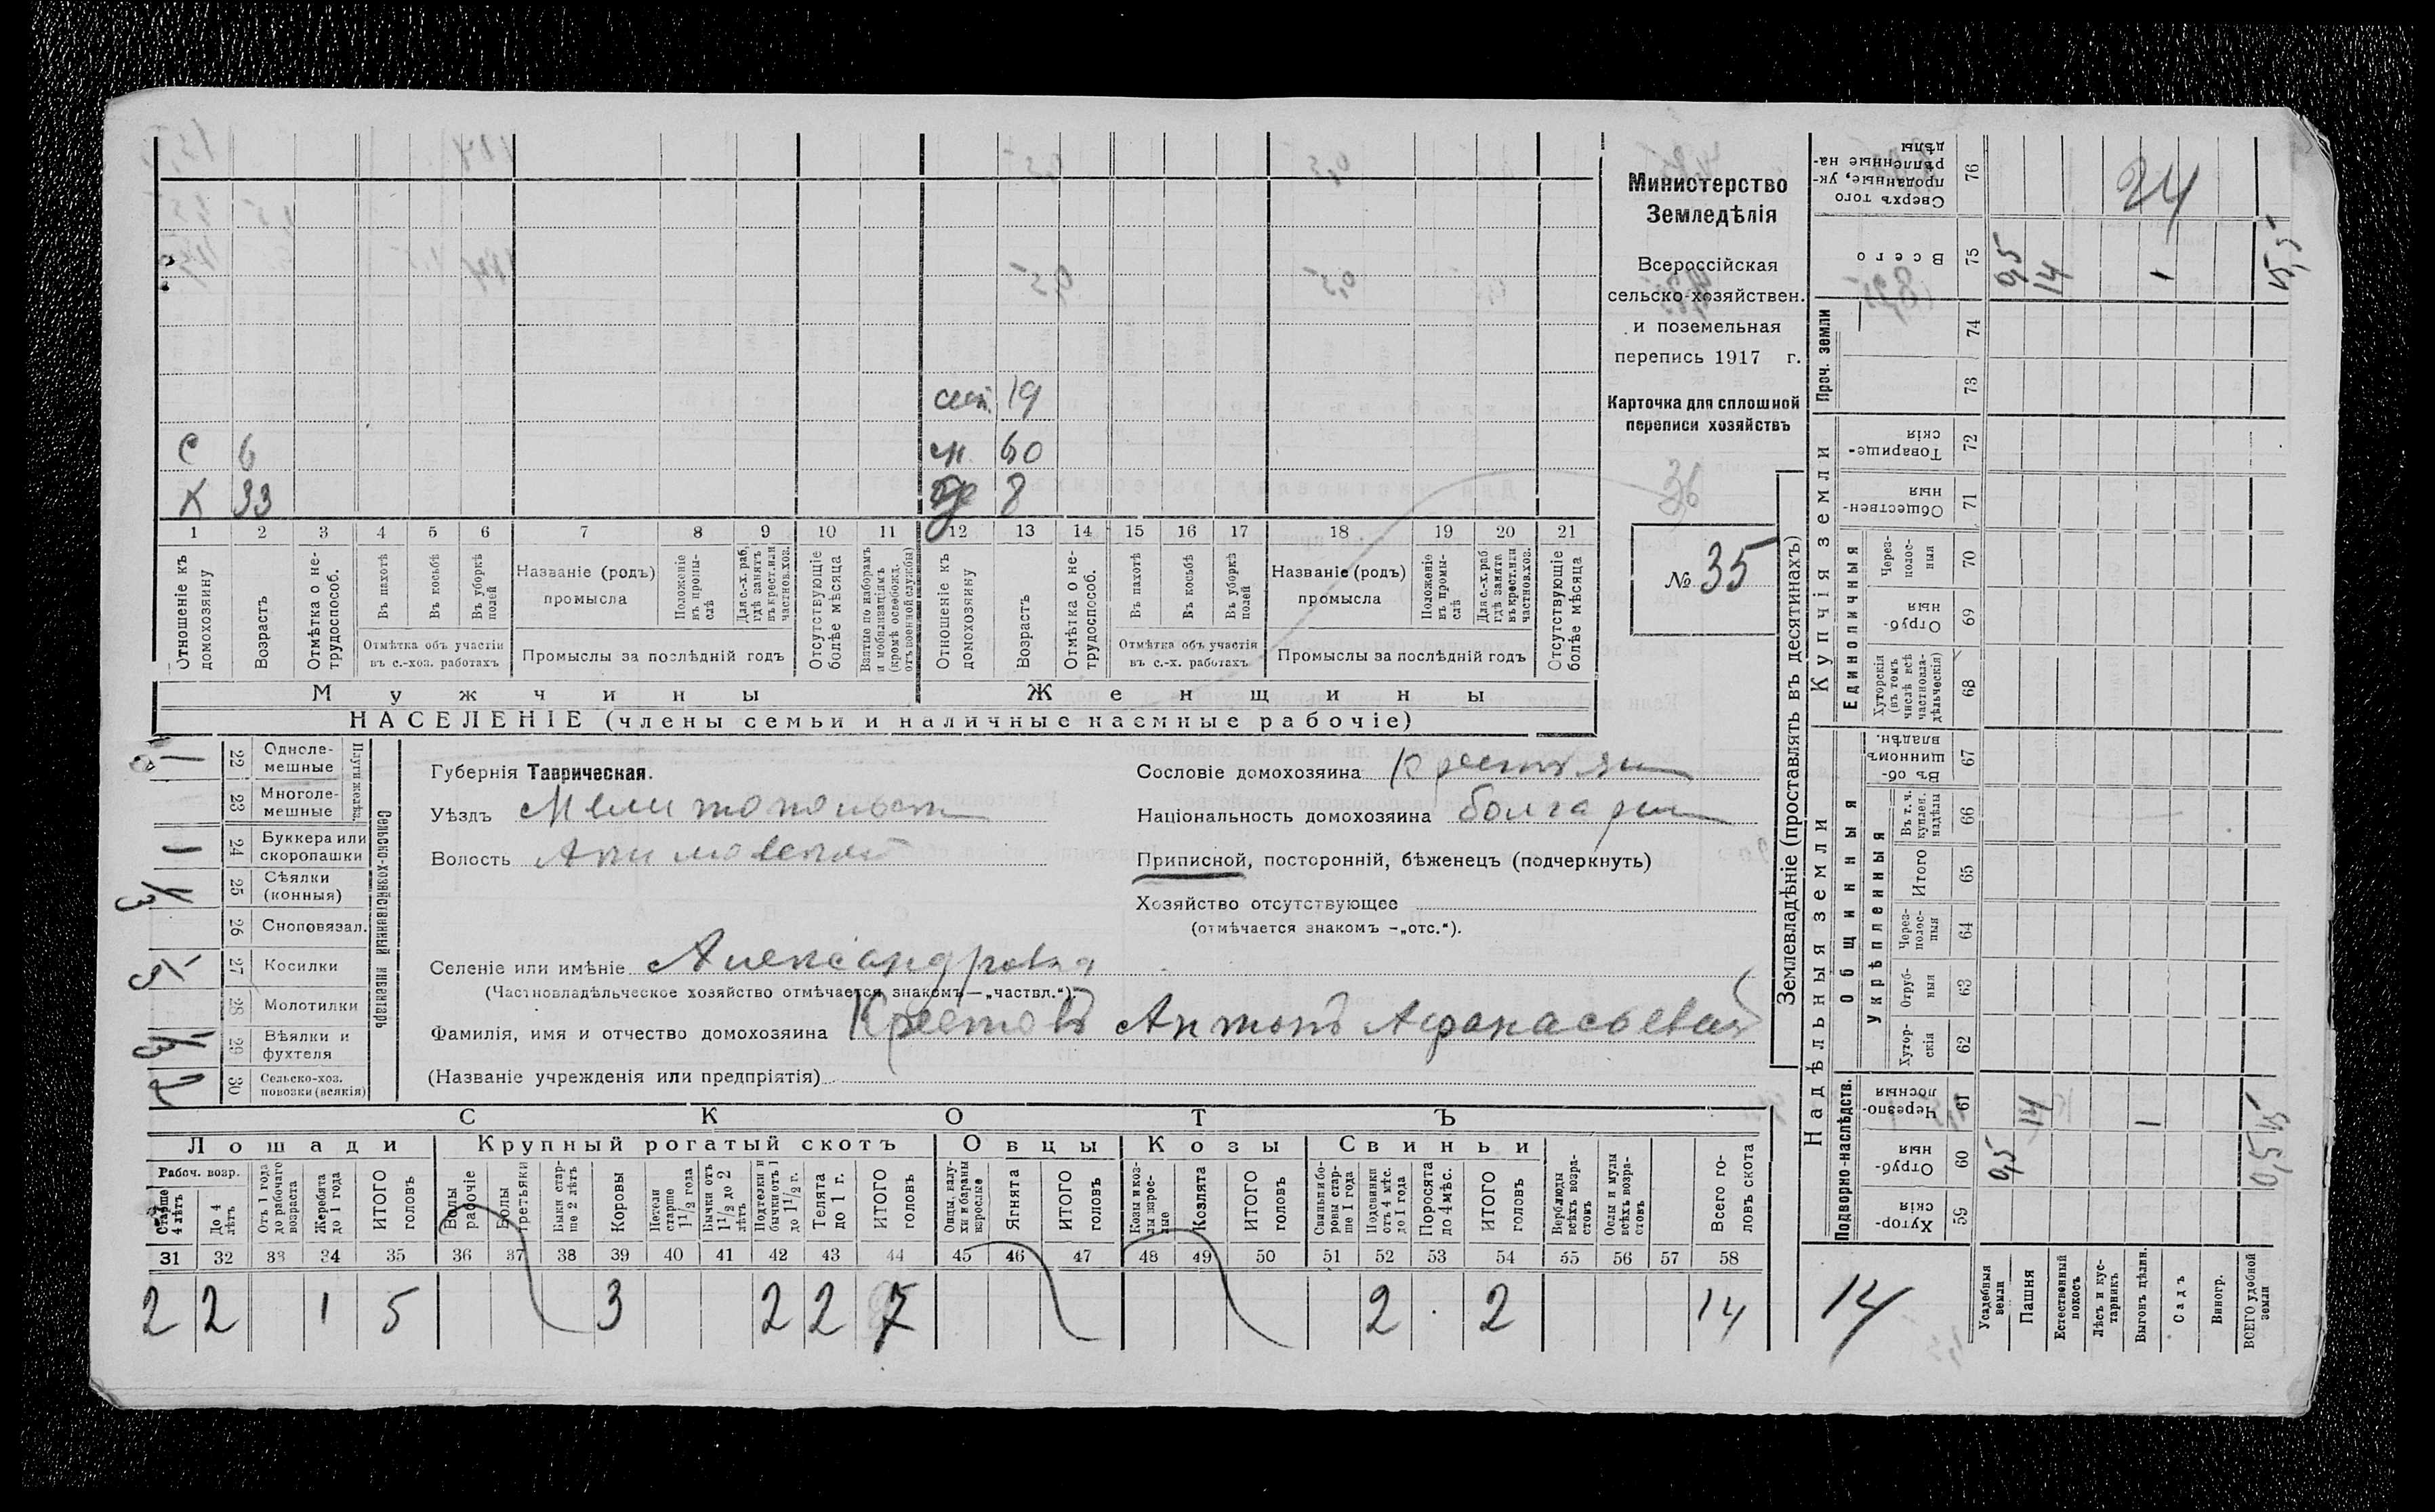 Министерство
Земледѣлія
Всероссійская
сельско-хозяйствен.
и поземельная
перепись 1917 г.
Карточка для сплошной
переписи хозяйствъ
36
№ 35
сест. 19
С 6 м. 60
К 33 8
1 2 3 4 5 6 7 8 9 10 11 12 13 14 15 16 17 18 19 20 21
Отношеніе къ домохозяину
Возрастъ
Отмѣтка о не-трудоспособ.
Въ пахотѣ
Въ косьбѣ
Въ уборкѣ полей
Отмѣтка объ участіи въ с.-хоз. работахъ
Названіе (родъ) промысла
Положеніе въ промы-слѣ
Для с.-х. раб. гдѣ занятъ въ крест. или частнов. хоз.
Промыслы за послѣдній годъ
Отсутствующіе болѣе мѣсяца
Взятые по наборамъ и мобилизаціямъ (кромѣ освобожд. отъ военной службы)
Отношеніе къ домохозяину
Возрастъ
Отмѣтка о не-трудоспособ.
Въ пахотѣ
Въ косьбѣ
Въ уборкѣ полей
Отмѣтка объ участіи въ с.-х. работахъ
Названіе (родъ) промысла
Положеніе въ промы-слѣ
Для с.-х. раб гдѣ занята въ крест. или частнов. хоз.
Промыслы за послѣдній годъ
Отсутствующіе болѣе мѣсяца
Мужчины Женщины
НАСЕЛЕНІЕ (члены семьи и наличные наемные рабочіе)
Сельско-хозяйственный инвентарь
Плуги желѣз.
22 Одноле-мешные 1
23 Многоле-мешные
24 Буккера или скоропашки 1
25 Сѣялки (конныя)
26 Сноповязал.
27 Косилки
28 Молотилки
29 Вѣялки и фухтеля
30 Сельско-хоз. повозки (всякія) 2
Губернія Таврическая.
Уѣздъ Мелитопольск
Волость
Селеніе или имѣніе Александровка
(Частновладѣльческое хозяйство отмѣчается знакомъ—„частвл.“).
Фамилія, имя и отчество домохозяина Крестовъ Антонъ Афанасьевич
(Названіе учрежденія или предпріятія)
Сословіе домохозяина крестьян
Національность домохозяина болгарин
Приписной, посторонній, бѣженецъ (подчеркнуть)
Хозяйство отсутствующее
(отмѣчается знакомъ —„отс.“).
СКОТЪ
Лошади Крупный рогатый скотъ Овцы Козы Свиньи
Рабоч. возр.
Старше 4 лѣтъ
До 4 лѣтъ
Отъ 1 года до рабочаго возраста
Жеребята до 1 года
ИТОГО головъ
Волы рабочіе
Волы третьяки
Быки стар-ше 2 лѣтъ
Коровы
Нетели старше 1 1/2 года
Бычки отъ 1 1/2 до 2 лѣтъ
Подтелки и бычки отъ 1 до 1 1/2 г.
Телята до 1 г.
ИТОГО головъ
Овцы, валу-хи и бараны взрослые
Ягнята
ИТОГО головъ
Козы и коз-лы взрос-лые
Козлята
ИТОГО головъ
Свиньи и бо-ровы стар-ше 1 года
Подсвинки отъ 4 мѣс. до 1 года
Поросята до 4 мѣс.
ИТОГО головъ
Верблюды всѣхъ возра-стовъ
Ослы и мулы всѣхъ возра-стовъ
Всего го-ловъ скота
31 32 33 34 35 36 37 38 39 40 41 42 43 44 45 46 47 48 49 50 51 52 53 54 55 56 57 58
2 2 1 5 3 2 2 7 2 2 14
Землевладѣніе (проставлять въ десятинахъ)
Надѣльныя земли Купчія земли Проч. земли
Подворно-наслѣдств.
Общинныя
Укрѣпленныя
Единоличныя
Хутор-скія 59
Отруб-ныя 60
Черезпо-лосныя 61
Хутор-скія 62
Отруб-ныя 63
Через-полос-ныя 64
Итого 65
Въ т. ч. куплен. надѣлы 66
Въ об-щинномъ владѣн. 67
Хуторскія (въ томъ числѣ всѣ частновла-дѣльческія) 68
Отруб-ныя 69
Через-полос-ныя 70
Обществен-ныя 71
Товарище-скія 72
73
74
Всего 75
Сверхъ того проданные, ук-рѣпленные на-дѣлы 76
Усадебныя земли 0,5 0,5
Пашня 14 14
Естественный покосъ
Лѣсъ и кус-тарникъ
Выгонъ цѣлин. 1 1
Садъ
Виногр.
ВСЕГО удобной земли 0,5 15 15,5
24
14